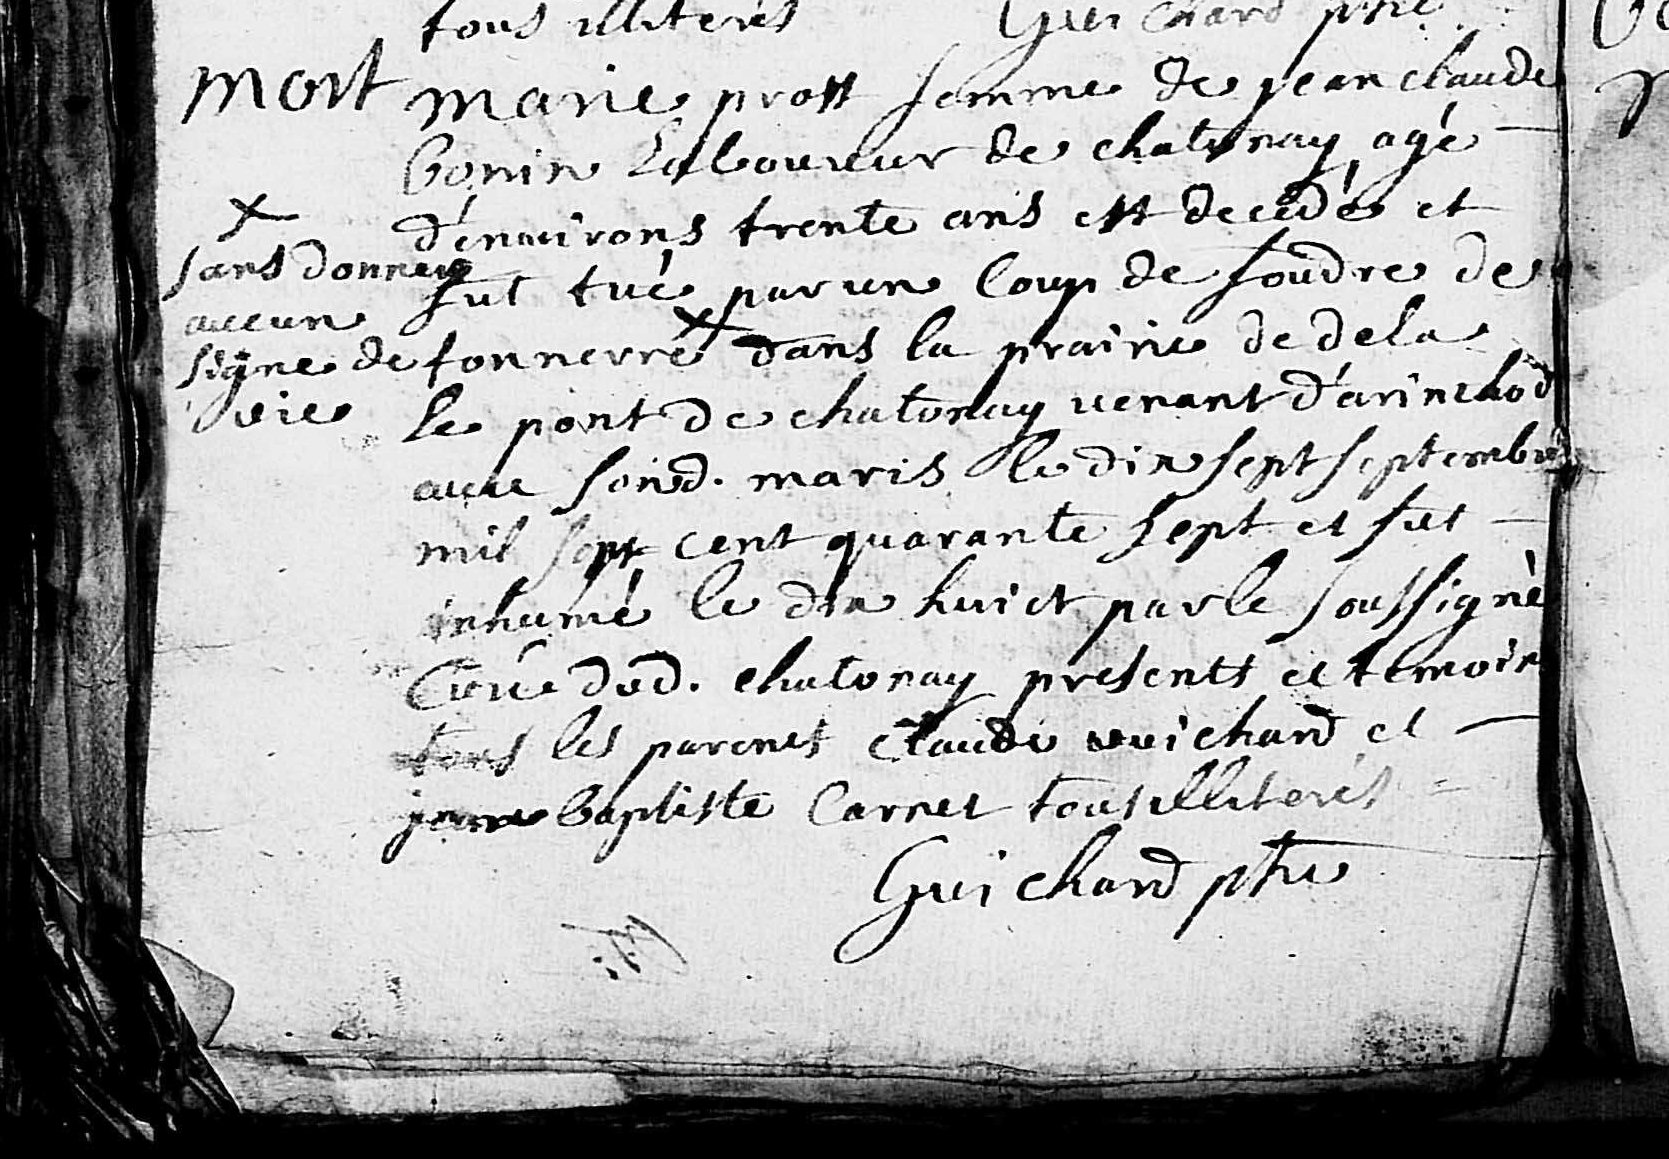 tous illiterés Guichard ptre
mort marie prost femme de jean claude
Bonin Laboureur de chatonay agé
d'enuirons trente ans est decedé et
fut tué par un coup de foudre de
tonnerre x dans la prairie de dela
le pont de chatonay uenant d'arinthod
auec sond. maris le dix sept septembre
mil sept cent quarante sept et fut
inhumé le dix huict par le soussigné
Curé dud. chatonay presents et temoin
tous les parents claude vuichard et
jean baptiste Carnet tous illiterés
Guichard ptre
x
sans donner
aucun
signe de
vie